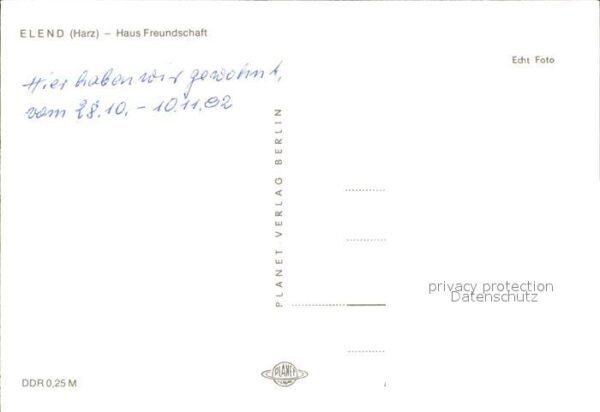 ELEND (Harz) – Haus Freundschaft
Echt Foto
Hier haben wir gewohnt,
vom 28.10. - 10.11.92
PLANET VERLAG BERLIN
privacy protection
Datenschutz
PLANET
DDR 0,25 M